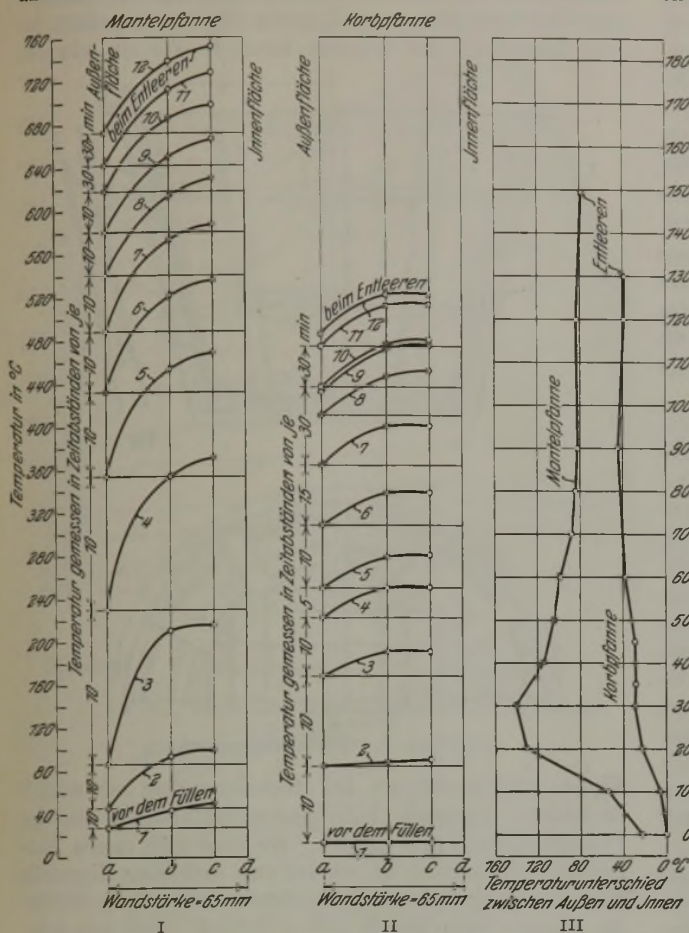 Mantelpfanne
Korbpfanne
Temperatur in °C
760
720
680
640
600
560
520
480
440
400
360
320
280
240
200
160
120
80
40
0
Temperatur gemessen in Zeitabständen von je
10
10
10
10
10
10
10
10
30
30
min
Außen-
fläche
12
beim Entleeren
11
10
9
8
7
6
5
4
3
2
vor dem Füllen
1
Innenfläche
a b c d
Wandstärke=65mm
I
Außenfläche
Temperatur gemessen in Zeitabständen von je
10
10
10
5
10
15
30
30
min
beim Entleeren
12
11
10
9
8
7
6
5
4
3
2
vor dem Füllen
1
Innenfläche
a b c d
Wandstärke=65mm
II
180
170
160
150
140
130
120
110
100
90
80
70
60
50
40
30
20
10
0
Entleeren
Mantelpfanne
Korbpfanne
160 120 80 40 0°C
Temperaturunterschied
zwischen Außen und Innen
III